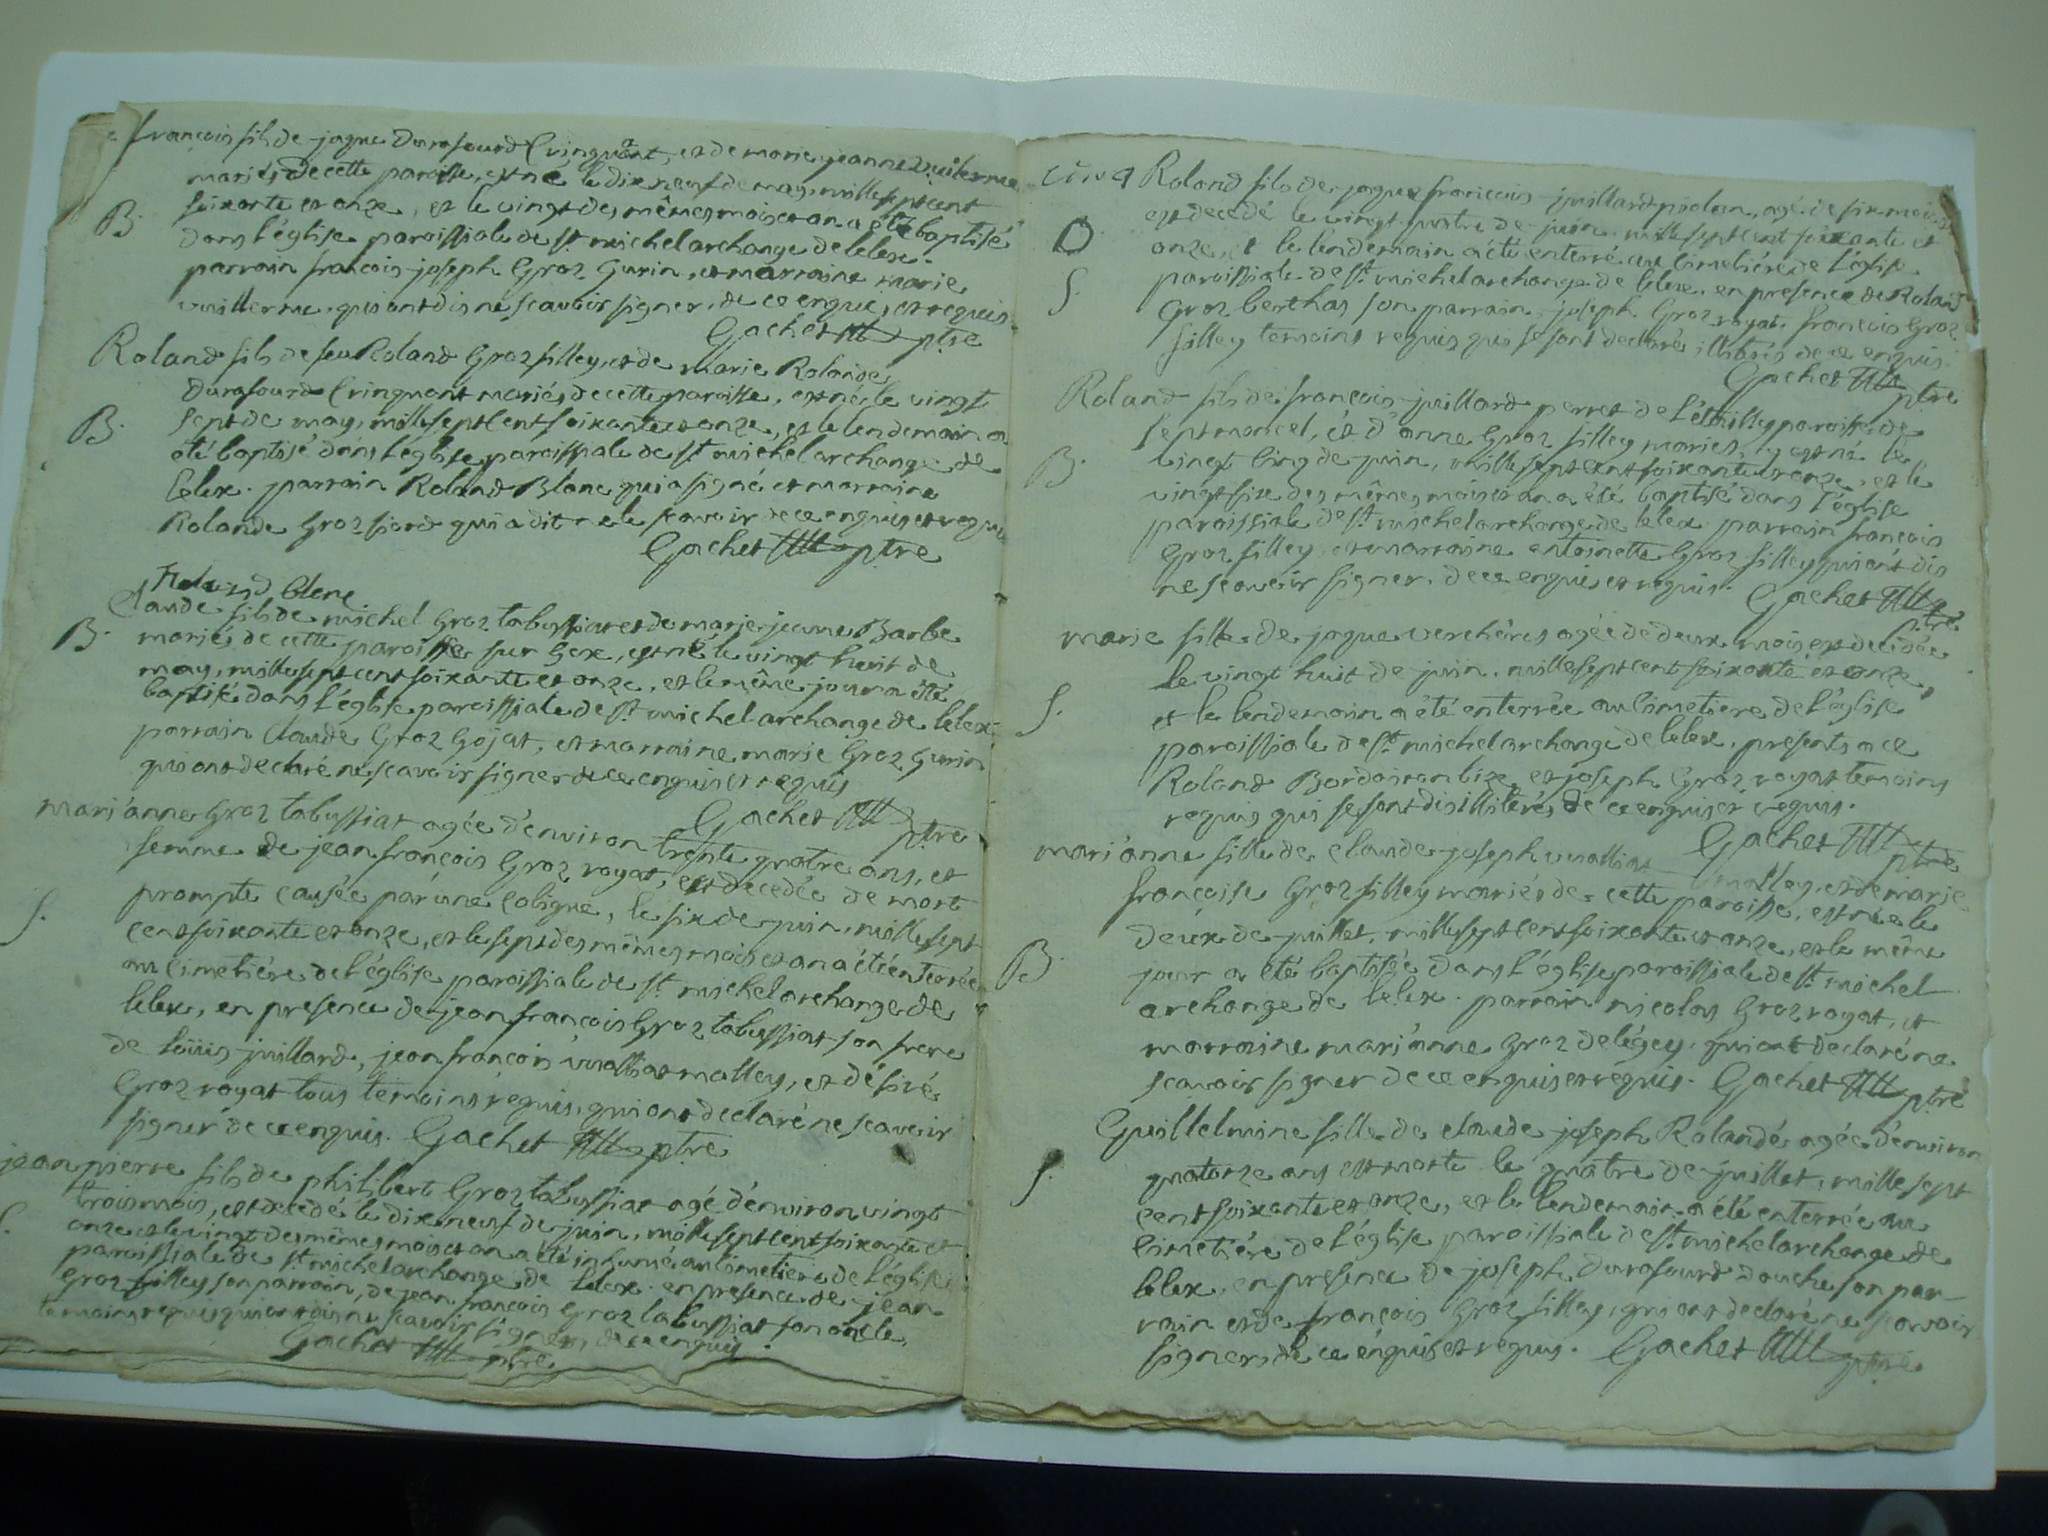 françois fils de jaque Durafourd Cringuant, et de marie jeanne vuillerme
mariés de cette paroisse, est né le dix neuf de may, mille sept cent
soixante et onze, et le vingt des mêmes mois et an a été baptisé
B.
dans l'église paroissiale de st. michel archange de lelex.
parrain françois joseph Groz Gurin, et marraine marie
vuillerme, qui ont dis ne scavoir signer, de ce enquis, et requis
Gachet ptre
Roland fils de feu Roland Groz filley, et de marie Rolande
Durafourd Cringuant mariés de cette paroisse, est né le vingt
B.
sept de may, mille sept cent soixante et onze, et le lendemain a
été baptisé dans l'église paroissiale de st. michel archange de
lelex. parrain Roland Blanc qui a signé et marraine
Rolande Groz fiord qui a dit ne le scavoir de ce enquis et requis
Gachet ptre
Roland blanc
Claude fils de michel Groz tabussiat et de marie jeanne Barbe
B.
mariés de cette paroisse sur Gex, est né le vingt huit de
may, mille sept cent soixante et onze, et le même jour a été
baptisé dans l'église paroissiale de st. michel archange de lelex.
parrain Claude Groz Gojat, et marraine marie Groz Gurin
qui ont declaré ne scavoir signer de ce enquis et requis
Gachet ptre
mari'anne Groz tabussiat agée d'environ trente quatre ans, et
femme de jean françois Groz royat, est decedée de mort
prompte causée par une colique, le six de juin, mille sept
S.
cent soixante et onze, et le sept des mêmes mois et an a été enterrée
au cimetière de l'église paroissiale de st. michel archange de
lelex, en presence de jean françois Groz tabussiat son frere
de loüis juillard, jean françois vuilliat malley, et désiré
Groz royat tous temoins requis, qui ont declaré ne scavoir
signer de ce enquis. Gachet ptre
jean pierre fils de philibert Groz tabussiat agé d'environ vingt
trois mois, est decedé le dix neuf de juin, mille sept cent soixante et
S.
onze et le vingt des mêmes mois et an a été inhumé au cimetiere de l'église
paroissiale de st. michel archange de lelex. en presence de jean
Groz filley son parrain, de jean françois Groz tabussiat son oncle,
temoins requis qui ont dis ne scavoir signer, de ce enquis.
Gachet ptre
Roland fils de jaque françois juillard piolan, agé de six mois
est decedé le vingt quatre de juin mille sept cent soixante et
onze, et le lendemain a été enterré au cimetière de l'église
S.
paroissiale de st. michel archange de lelex. en presence de Roland
Groz berthas son parrain, joseph Groz royat, françois Groz
filley temoins requis qui se sont declaré illiterés de ce enquis.
Gachet ptre
Roland fils de françois juillard perret de l'étuilley paroisse de
septmoncel, et d'anne Groz filley mariés, y est né le
B.
vingt cinq de juin, mille sept cent soixante et onze, et le
vingt six des mêmes mois et an a été baptisé dans l'église
paroissiale de st. michel archange de lelex parrain françois
Groz filley, et marraine antoinette Groz filley qui ont dis
ne scavoir signer. de ce enquis et requis. Gachet ptre
marie fille de jaque verchères agée de deux mois est decedée
le vingt huit de juin, mille sept cent soixante et onze,
S.
et le lendemain a été enterrée au cimetiere de l'église
paroissiale de st. michel archange de lelex, presents a ce
Roland et joseph Groz royat temoins
requis qui se sont dis illiterés de ce enquis et requis.
Gachet ptre
mari'anne fille de claude joseph vuilliat malley, et de marie
françoise Groz filley mariés de cette paroisse, est née le
deux de juillet, mille sept cent soixante et onze, et le même
B.
jour a été baptisée dans l'église paroissiale de st. michel
archange de lelex. parrain nicolas Groz royat, et
marraine mari'anne Groz delégey, qui ont declaré ne
scavoir signer de ce enquis et requis. Gachet ptre
Guillelmine fille de claude joseph Rolandé agée d'environ
S.
quatorze ans est morte le quatre de juillet, mille sept
cent soixante et onze, et le lendemain a été enterrée au
cimetiére de l'église paroissiale de st. michel archange de
lelex, en presence de joseph Durafourd douche son par-
rain et de françois Groz filley, qui ont declaré ne scavoir
signer, de ce enquis et requis. Gachet ptre